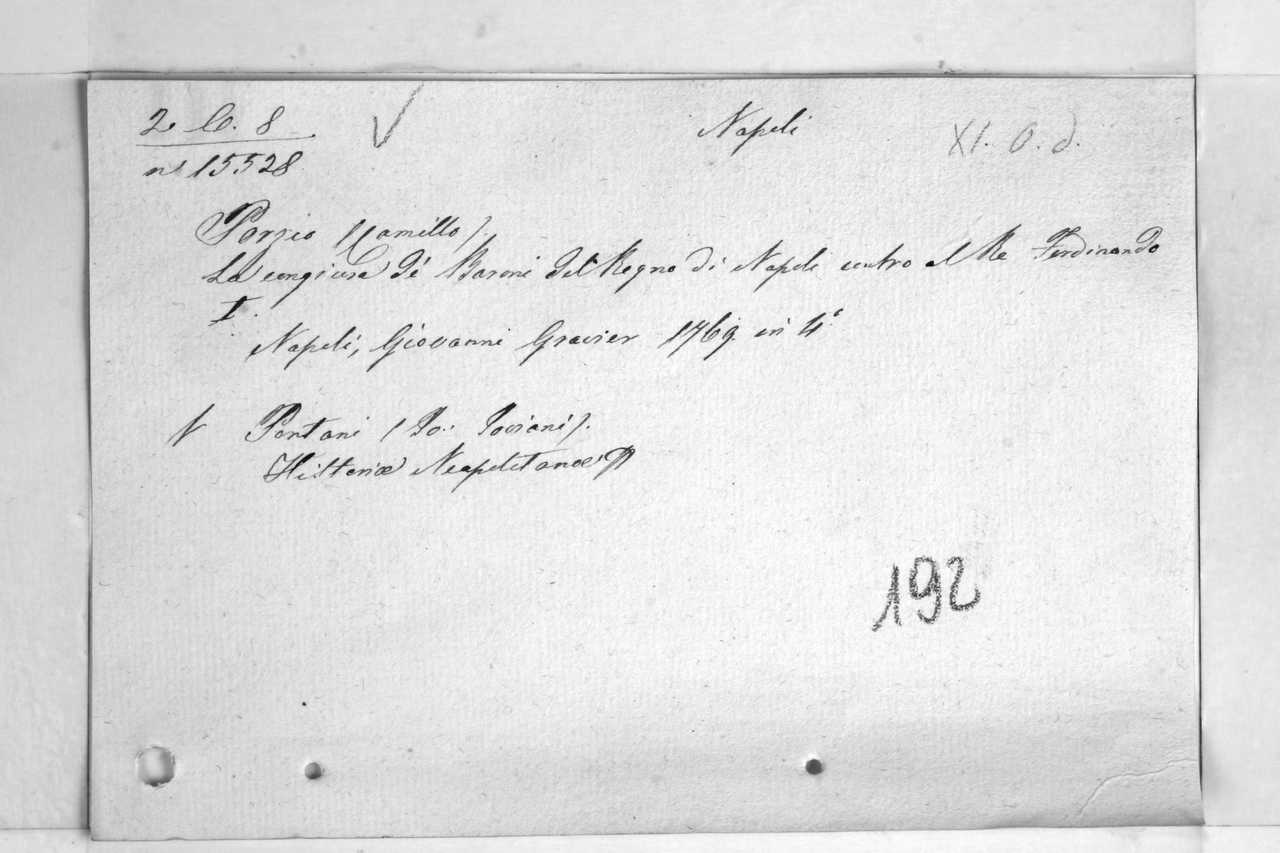 2. lo. 8 Napoli XI. O. d.
nº 15528
Porzio (Camillo).
La congiura de' Baroni del Regno di Napoli contro al Re Ferdinando
I.
Napoli, Giovanni Gravier 1769. in 4º
Pontani (Jo: Joviani).
Historiæ Neapolitanæ
192